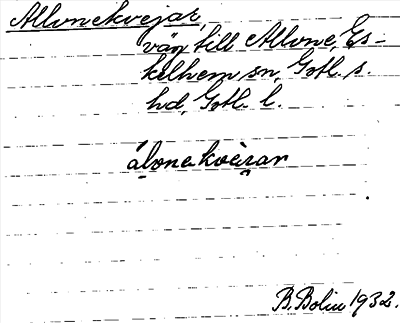 Allvnekvejar,
väg till Allvne, Es-
kelhem sn, Gotl. s.
hd, Gotl. l.
álvnekvèrar
B. Bolin 1932.